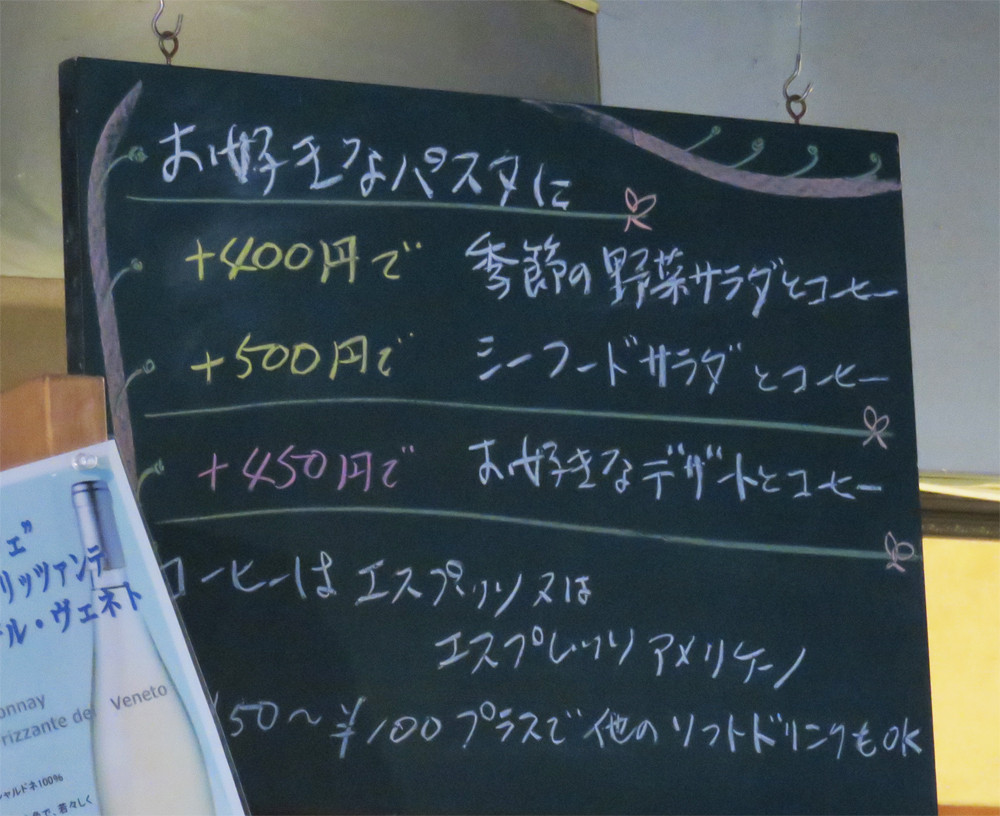 お好きなパスタに
+400円で 季節の野菜サラダとコーヒー
+500円で シーフードサラダとコーヒー
+450円で お好きなデザートとコーヒー
コーヒーはエスプレッソ又は
エスプレッソ アメリケーノ
¥50～¥100プラスで他のソフトドリンクもOK
ェ"
リッツァンテ
ル・ヴェネト
onnay
rizzante de Veneto
シャルドネ100%
で、若々しく